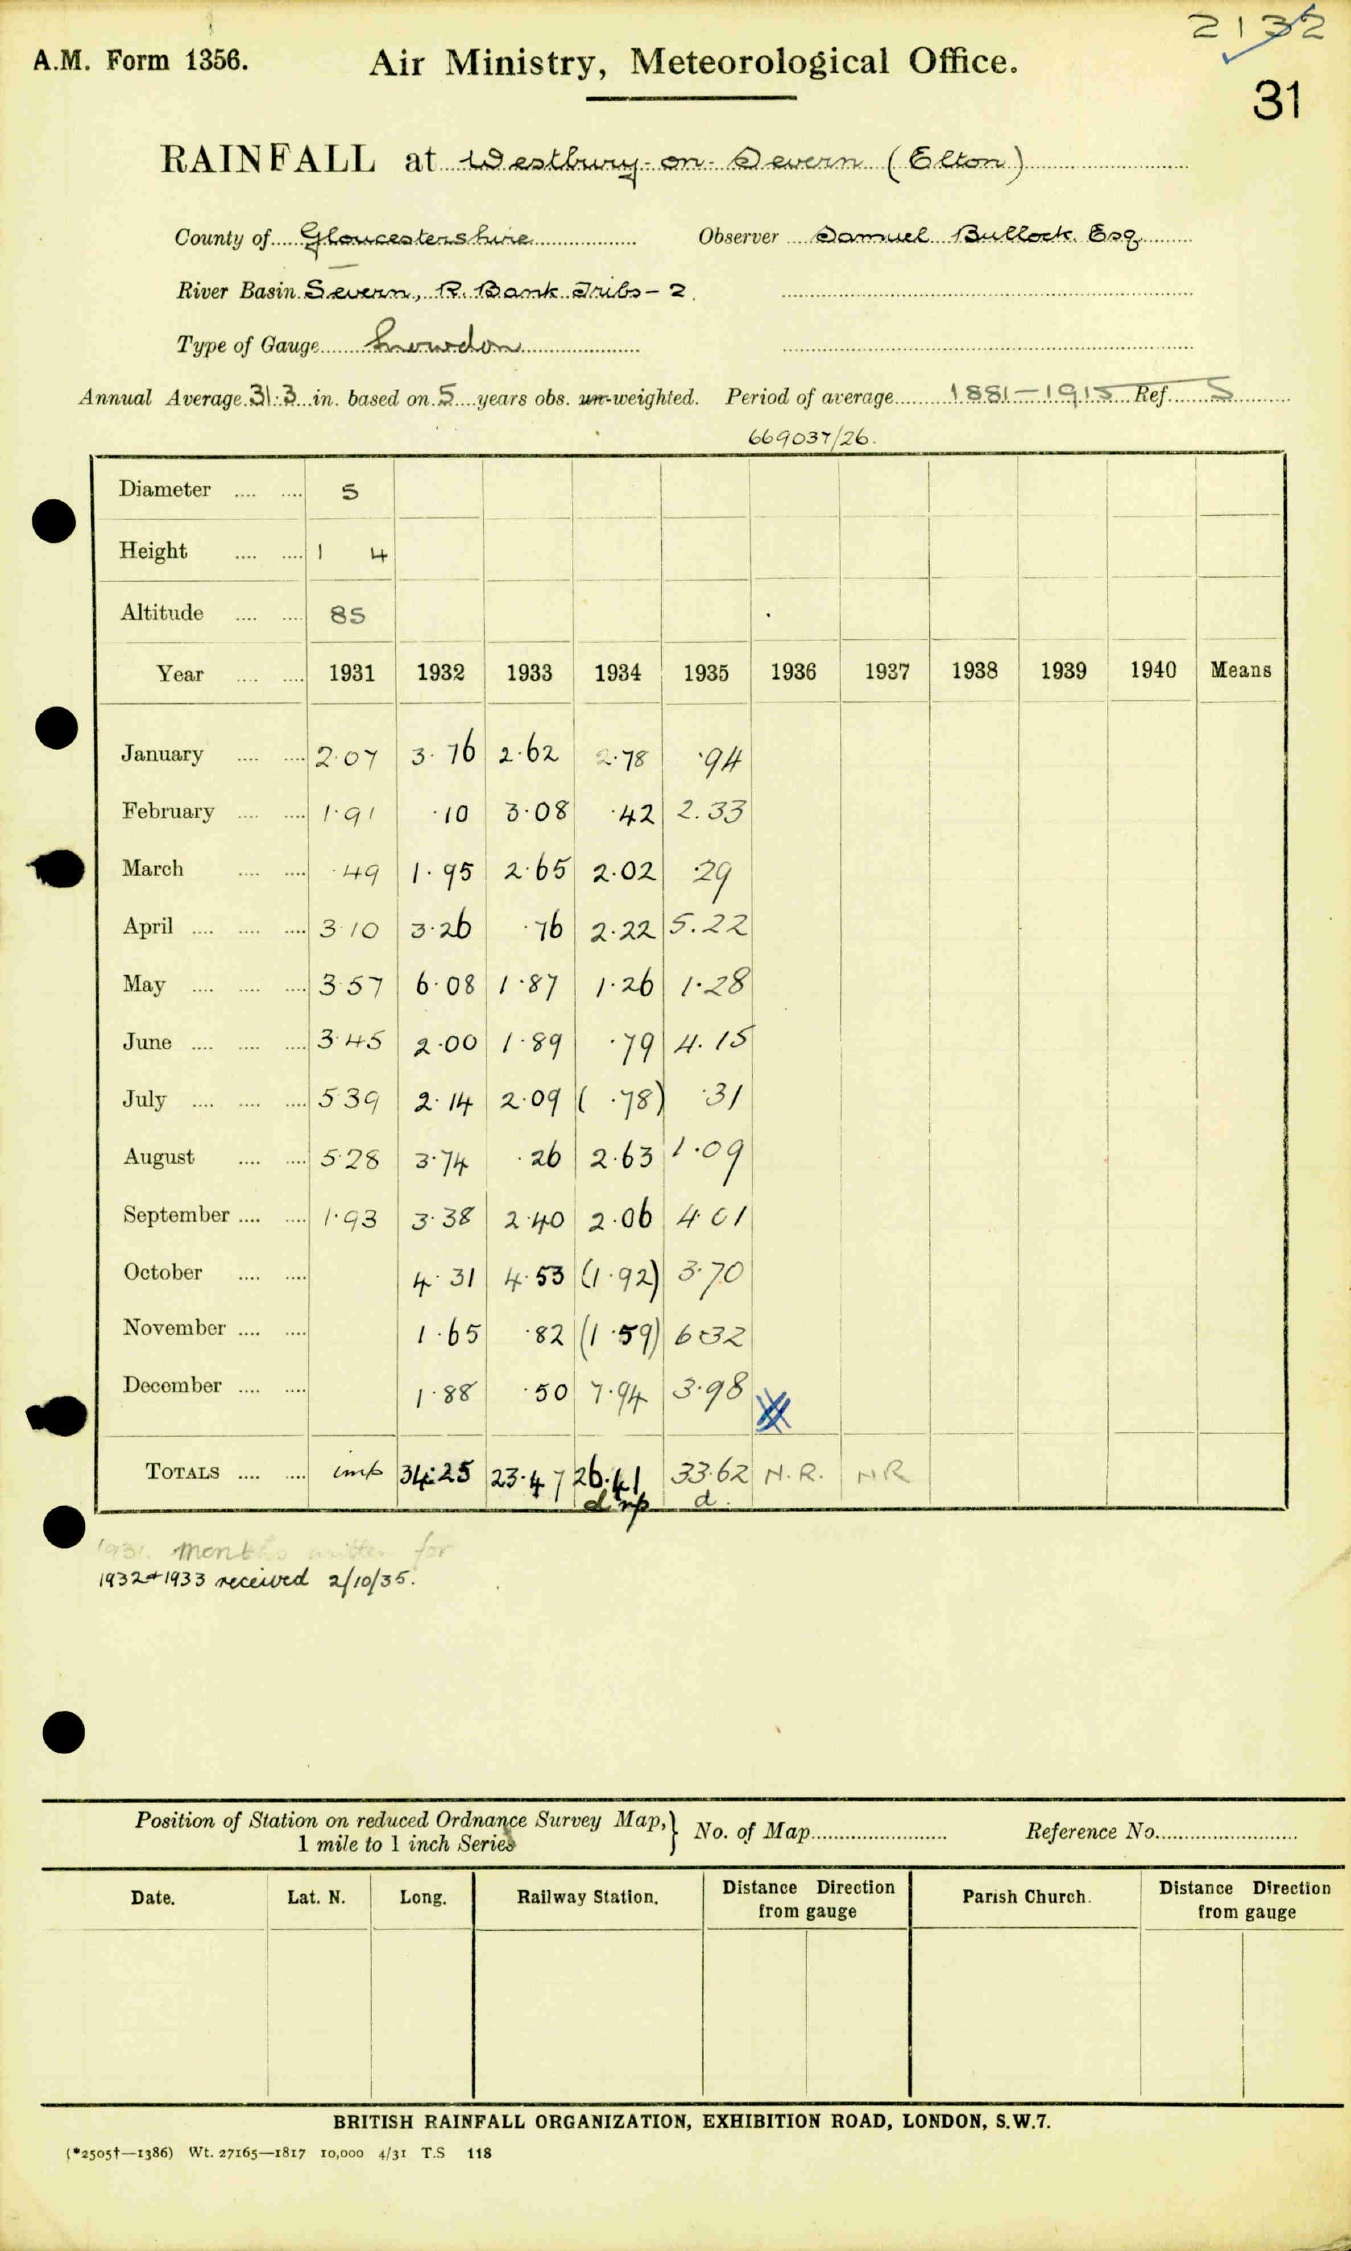 2132
A.M. Form 1356.
Air Ministry, Meteorological Office.
31
RAINFALL at Westbury-on-Severn (Elton)
County of Gloucestershire Observer Samuel Bullock Esq
River Basin Severn, R. Bank Tribs-2.
Type of Gauge Snowdon
Annual Average 31.3 in. based on 5 years obs. un-weighted. Period of average 1881-1915 Ref. S
669037/26.
Diameter .... .... 5
Height .... .... 1 4
Altitude .... .... 85
Year .... .... 1931 1932 1933 1934 1935 1936 1937 1938 1939 1940 Means
January .... .... 2.07 3.76 2.62 2.78 .94
February .... .... 1.91 .10 3.08 .42 2.33
March .... .... .49 1.95 2.65 2.02 .29
April .... .... .... 3.10 3.26 .76 2.22 5.22
May .... .... .... 3.57 6.08 1.87 1.26 1.28
June .... .... .... 3.45 2.00 1.89 .79 4.15
July .... .... .... 5.39 2.14 2.09 ( .78) .31
August .... .... 5.28 3.74 .26 2.63 1.09
September .... .... 1.93 3.38 2.40 2.06 4.01
October .... .... 4.31 4.53 (1.92) 3.70
November .... .... 1.65 .82 (1.59) 6.32
December .... .... 1.88 .50 7.94 3.98
TOTALS .... .... imp 34.25 23.47 26.41 33.62 N.R. NR
d
1931 months written for
1932+1933 received 2/10/35.
Position of Station on reduced Ordnance Survey Map,} No. of Map Reference No.
1 mile to 1 inch Series
Date. Lat. N. Long. Railway Station. Distance Direction from gauge Parish Church. Distance Direction from gauge
BRITISH RAINFALL ORGANIZATION, EXHIBITION ROAD, LONDON, S.W.7.
(*2505†—1386) Wt. 27165—1817 10,000 4/31 T.S 118